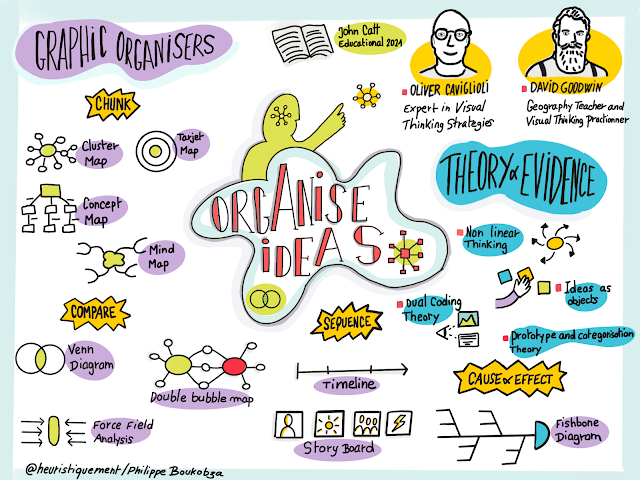 GRAPHIC ORGANISERS
John Catt
Educational 2024
OLIVER CAVIGLIOLI
Expert in Visual
Thinking Strategies
DAVID GOODWIN
Geography Teacher and
Visual Thinking Practionner
CHUNK
Cluster
Map
Target
Map
Concept
Map
Mind
Map
ORGANISE
IDEAS
THEORY & EVIDENCE
Non linear
Thinking
Ideas as
objects
Dual Coding
Theory
Prototype and categorisation
Theory
COMPARE
Venn
Diagram
Double bubble map
Force Field
Analysis
SEQUENCE
Timeline
Story Board
CAUSE & EFFECT
Fishbone
Diagram
@heuristiquement/Philippe Boukobza